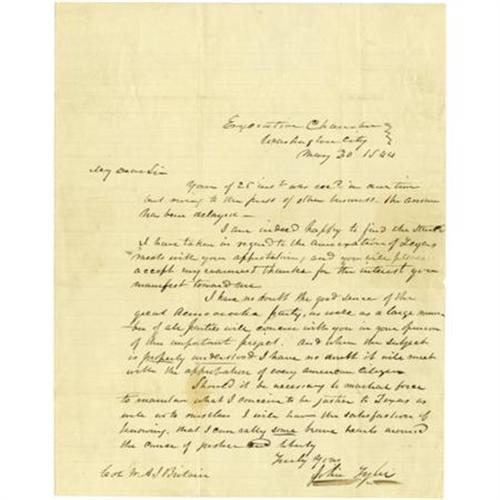 Executive Chamber
Washington City
May 30 1844
My dear Sir
Yours of 25 inst was rec'd in due time
but owing to the press of other business the answer
has been delayed —
I am indeed happy to find the
I have taken in regard to the Annexation of Texas
meets with your approbation, and you will please
accept my earnest thanks for the interest you
manifest toward me
I have no doubt the good sense of the
great Democratic party, as well as a large
of all parties will concur with you in your opinion
of this important project. And when the subject
is properly understood I have no doubt it will meet
with the approbation of every American Citizen
Should it be necessary to marshal force
to maintain what I conceive to be justice to Texas as
well as to ourselves I will have the satisfaction of
knowing, that I can rally some brave hearts around
the cause of justice and liberty
Truly Yours
John Tyler
Col W. A. J. Britain